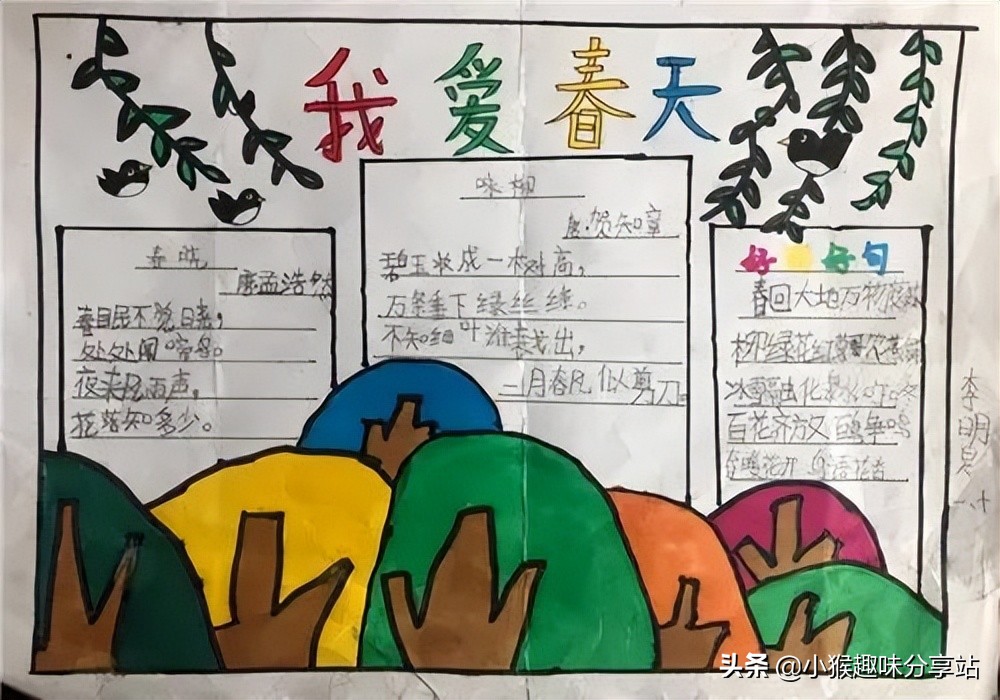 我爱春天
春晓
唐孟浩然
春眠不觉晓,
处处闻啼鸟。
夜来风雨声,
花落知多少。
咏柳
唐·贺知章
碧玉妆成一树高,
万条垂下绿丝绦。
不知细叶谁裁出,
二月春风似剪刀。
好 好句
春回大地万物
柳绿花红
冰雪融化泉水叮咚
百花齐放 百鸟争鸣
鸟语花香
李明
头条 @小猴趣味分享站